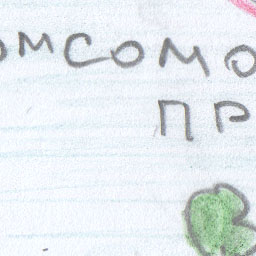 омсомо
пр